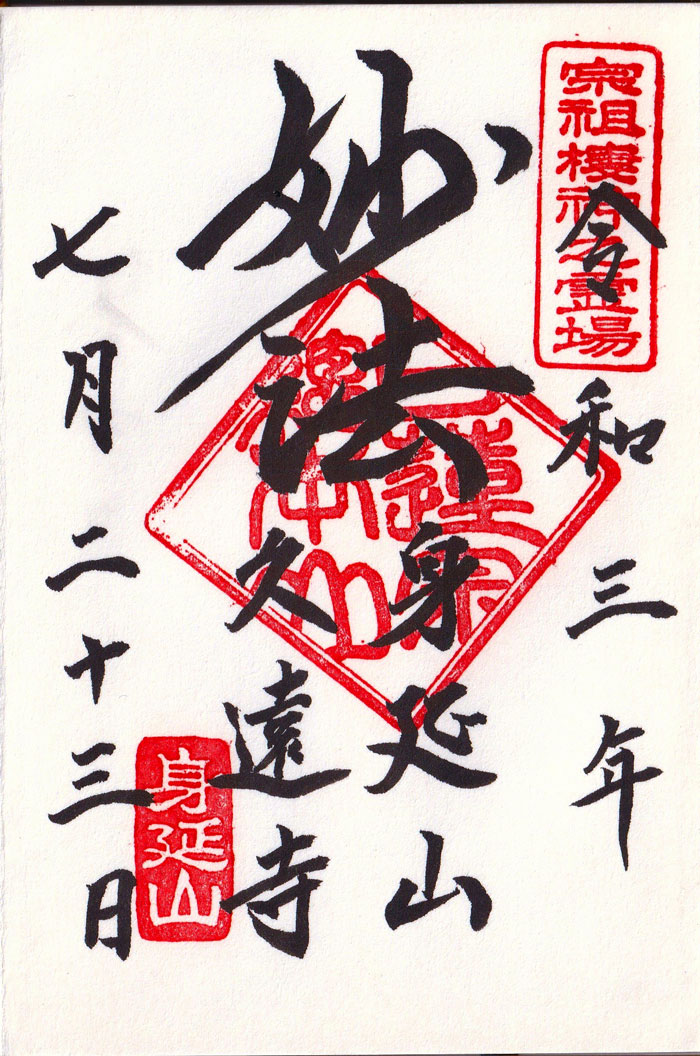 宗祖棲神之霊場
令和三年
妙法
身延山
久遠寺
七月二十三日
身延山